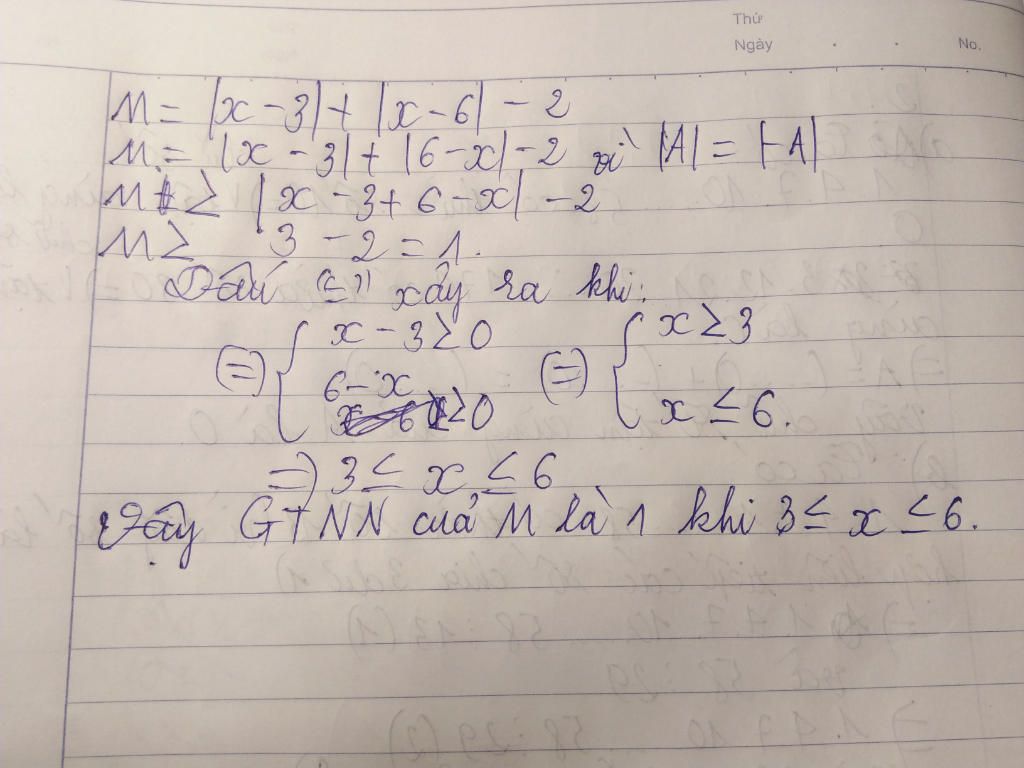 Thứ
Ngày . . No.
M = |x - 3| + |x - 6| - 2
M = |x - 3| + |6 - x| - 2 vì |A| = |-A|
M ≥ |x - 3 + 6 - x| - 2
M ≥ 3 - 2 = 1.
Dấu "=" xảy ra khi:
(=) { x - 3 ≥ 0 (=) { x ≥ 3
6 - x ≥ 0 x ≤ 6.
=) 3 ≤ x ≤ 6
Vậy GTNN của M là 1 khi 3 ≤ x ≤ 6.